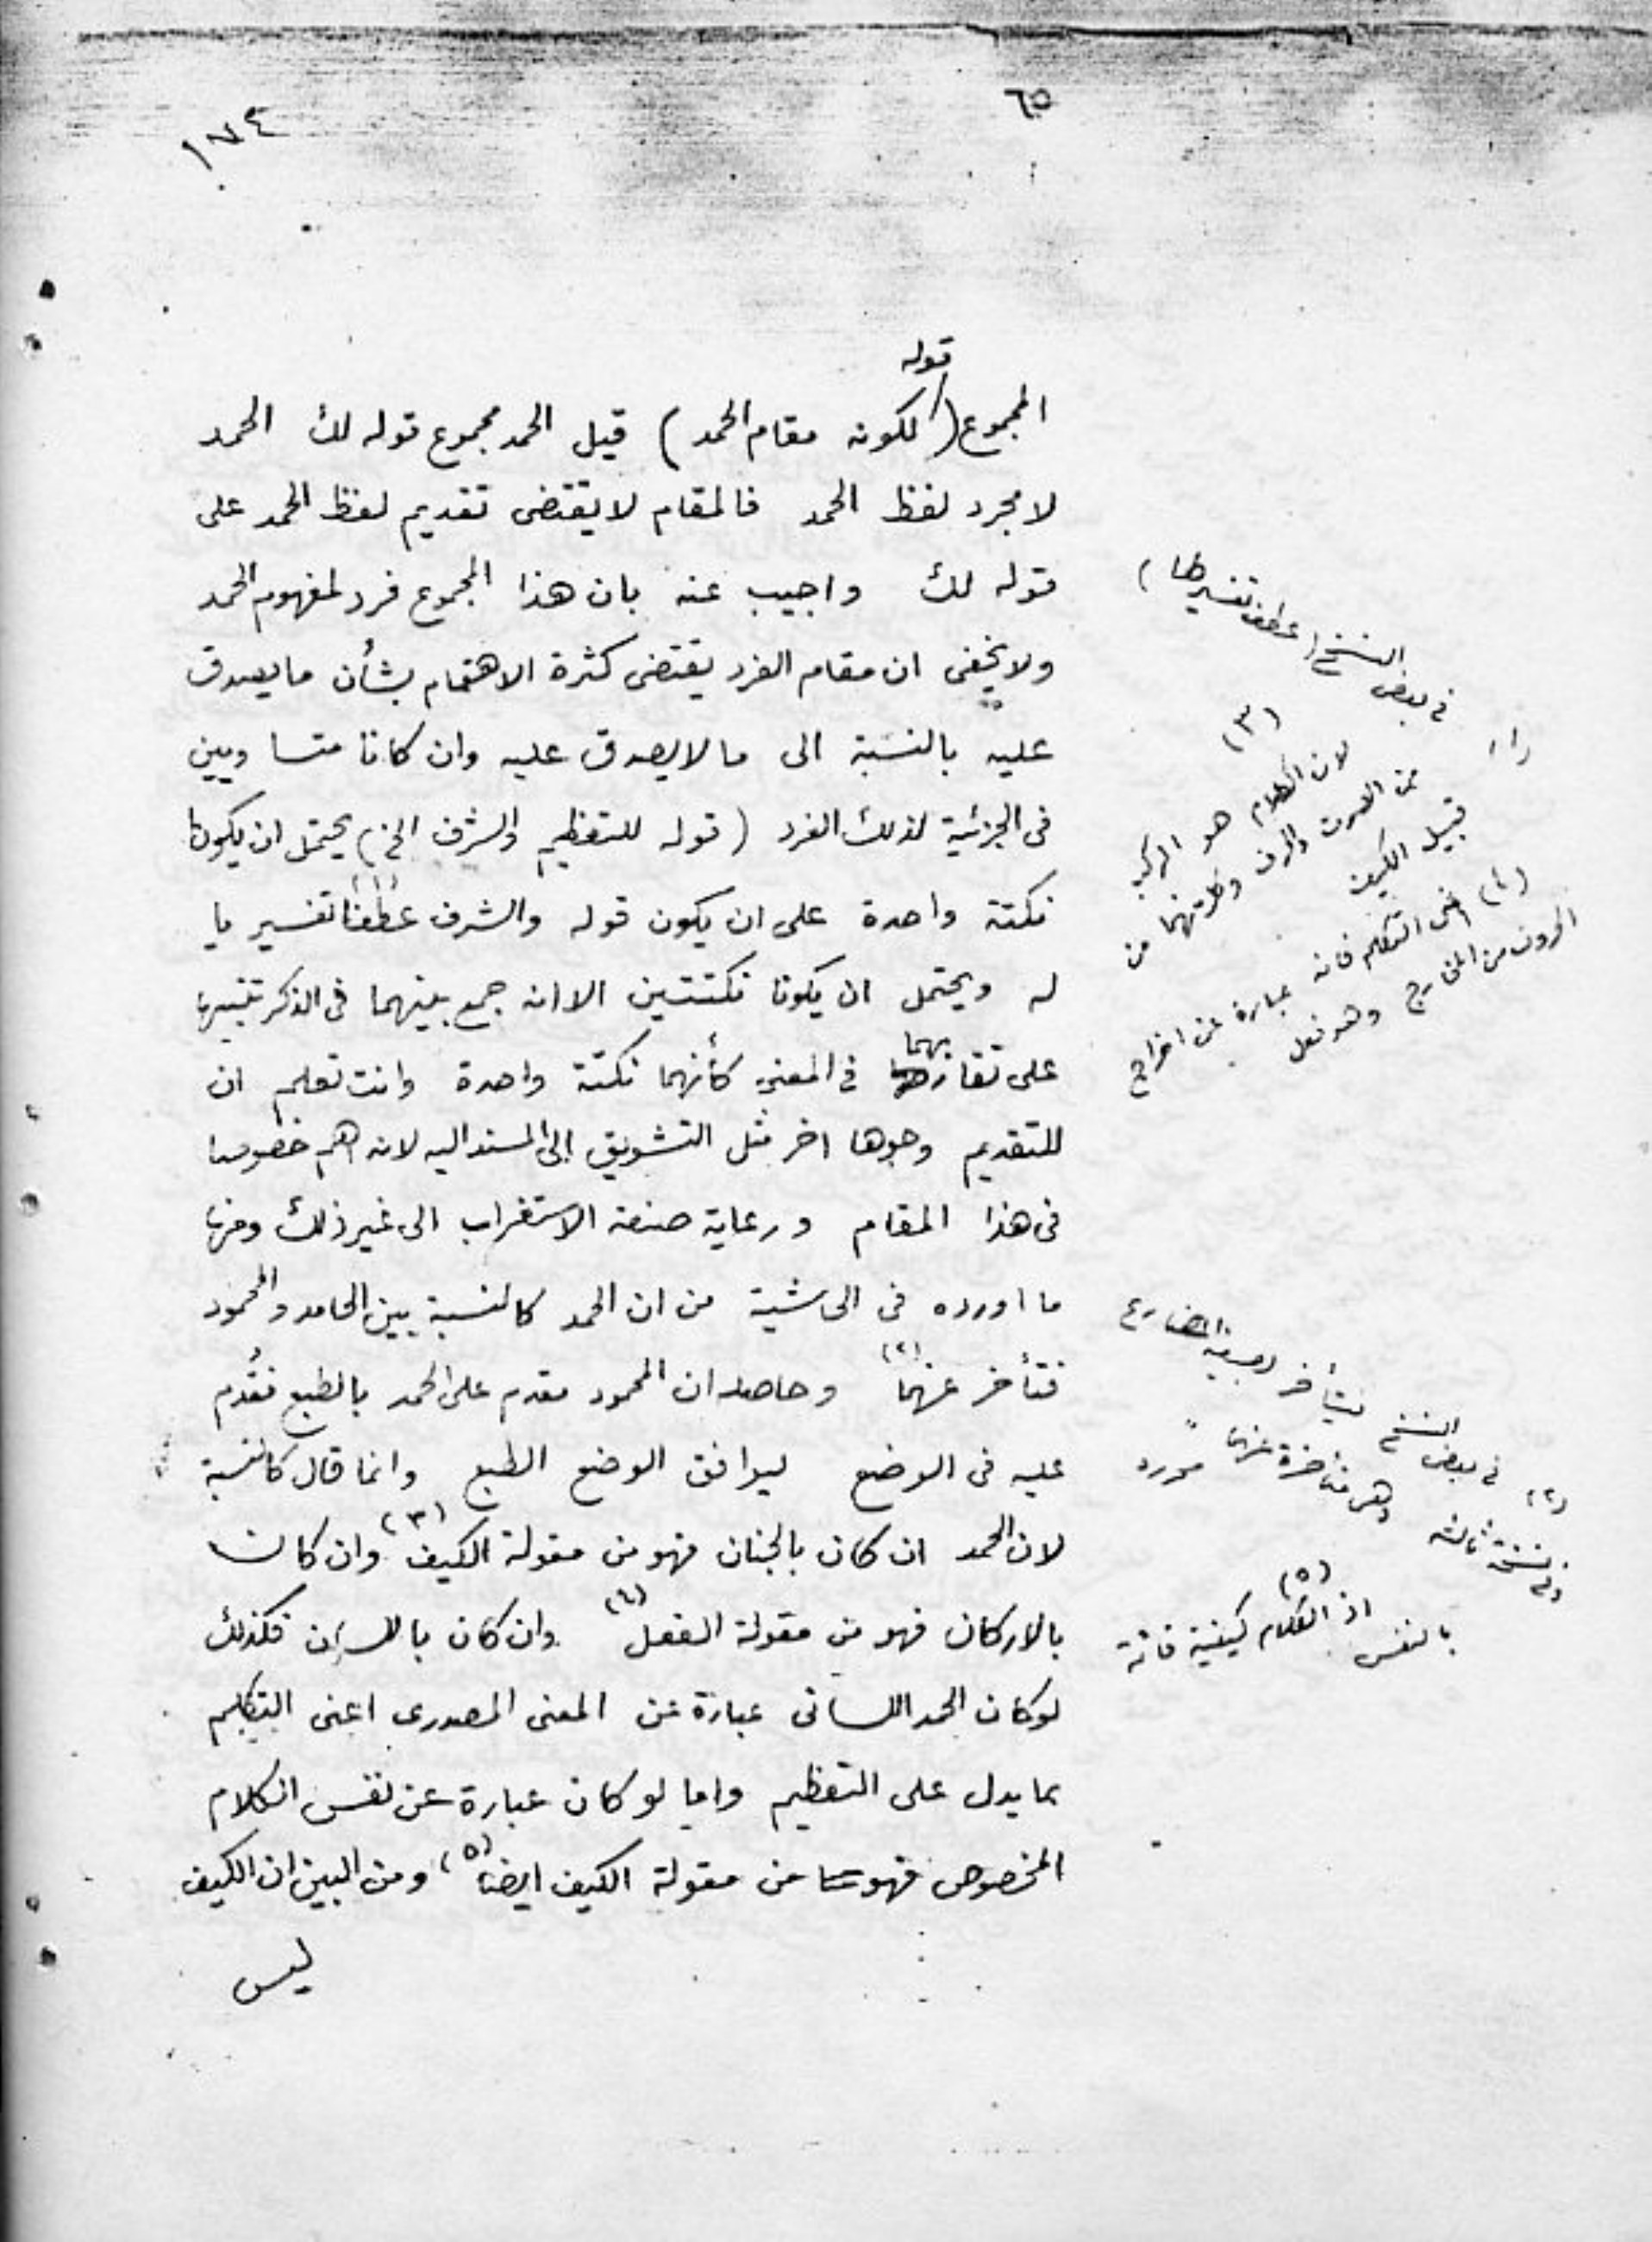 ٦٥
١٧٤
قوله
المجموع (لكونه مقام الحمد) قيل الحمد مجموع قوله لك الحمد
لا مجرد لفظ الحمد فالمقام لا يقتضى تقديم لفظ الحمد على
قوله لك واجيب عنه بان هذا المجموع فرد لمفهوم الحمد
ولا يخفى ان مقام الفرد يقتضى كثرة الاهتمام بشأن ما يصدق
عليه بالنسبة الى ما لا يصدق عليه وان كانا متساويين
فى الجزئية لذلك الفرد (قوله للتعظيم والشرف الخ) يحتمل ان يكونا
نكتة واحدة على ان يكون قوله والشرف عطفا (١) تفسيريا
له ويحتمل ان يكونا نكتتين الا انه جمع بينهما فى الذكر تنبيها
على تقاربهما فى المعنى كأنهما نكتة واحدة وانت تعلم ان
للتقديم وجوها اخر مثل التشويق الى المسند اليه لانه اهم خصوصا
فى هذا المقام ورعاية صنعة الاستغراب الى غير ذلك ومنها
ما اورده فى الحاشية من ان الحمد كالنسبة بين الحامد والمحمود
فتأخر عنهما (٢) وحاصله ان المحمود مقدم على الحمد بالطبع فقُدم
عليه فى الوضع ليوافق الوضع الطبع وانما قال كالنسبة
لان الحمد ان كان بالجنان فهو من مقولة الكيف (٣) وان كان
بالاركان فهو من مقولة الفعل (٤) وان كان باللسان فكذلك
لو كان الحمد اللسانى عبارة عن المعنى المصدرى اعنى التكلم
بما يدل على التعظيم واما لو كان عبارة عن نفس الكلام
المخصوص فهو من مقولة الكيف ايضا (٥) ومن البين ان الكيف
ليس
(١) فى بعض النسخ (عطف تفسير لها)
(٣) لان الكلام هو المركب
من الصوت والحرف وكلاهما من
قبيل الكيف
(٤) اعنى التكلم فانه عبارة عن اخراج
الحروف من المخارج وهو فعل
(٢) فى بعض النسخ يتأخر بصيغة المضارع
وفى نسخة ثالثة وهو متأخرة عنهما
(٥) اذ الكلام كيفية قائمة
بالنفس